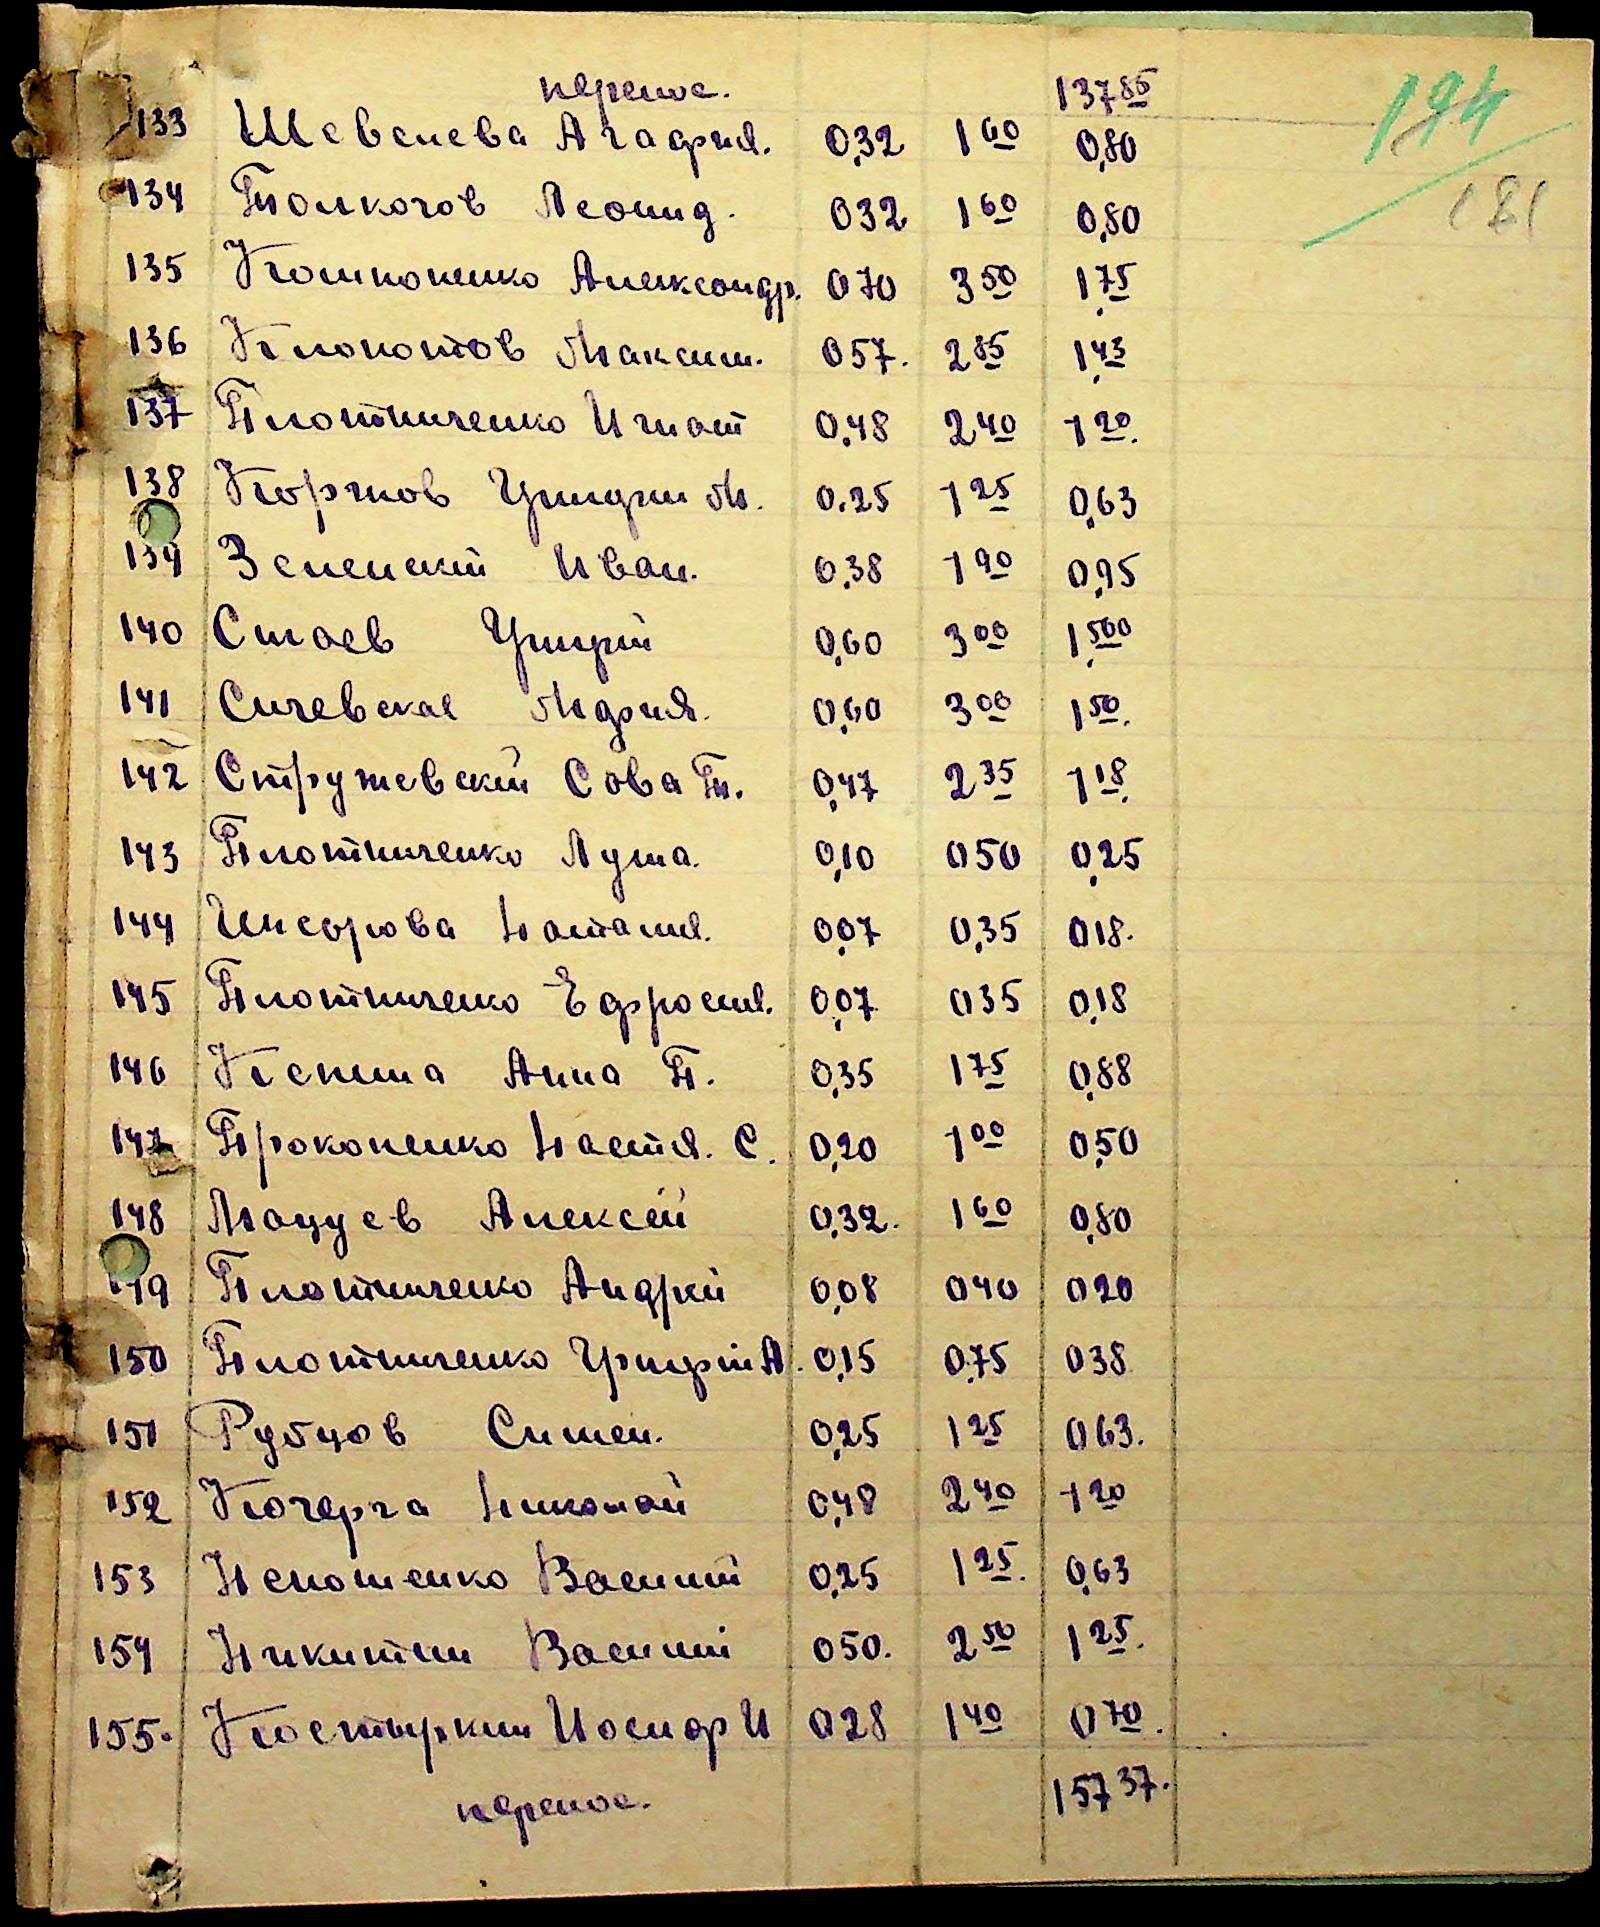 перенос. 137 85
194
181
133 Шевелева Агафия. 0,32 1 60 0,80
134 Толкогов Леонид. 032 1 60 0,80
135 Компоненко Александр. 070 3 50 1,75
136 Клопотов Максим. 057. 2 85 1,43
137 Плотниченко Игнат 0,48 2 40 1 20.
138 Коржов Грицри М. 0.25 1 25 0,63
139 Зеленский Иван. 0,38 1 90 0,95
140 Стоев Григрій 0,60 3 00 1,500
141 Сичевская Мария. 0,60 3 00 1 50.
142 Стружевский Сова П. 0,47 2 35 1 18.
143 Плотниченко Луша. 0,10 050 0,25
144 Наталия. 0,07 0,35 018.
145 Плотниченко Ефросия. 0,07 035 0,18
146 Кепша Анна П. 0,35 1 75 0,88
147 Прокопенко Настя. С. 0,20 1 00 0,50
148 Мацуев Алексей 0,32. 1 60 0,80
149 Плотниченко Андрей 0,08 040 020
150 Плотниченко Григрій А. 0,15 0,75 038
151 Рубцов Симен. 0,25 1 25 063.
152 Кочерга Николай 0,48 2 40 1 20
153 Непошенко Василий 0,25 1 25. 0,63
154 Никитин Василий 050. 2 50 1 25.
155. Костыркин Иосиф И 028 1 40 0 70.
перенос. 157 37.